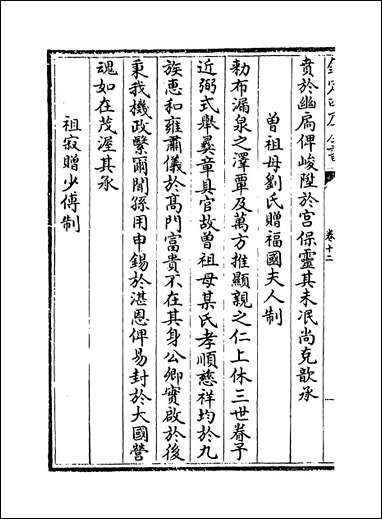 欽定四庫全書
卷十二
賁於幽扄俾峻陞於宫保靈其未泯尚克歆承
曽祖母劉氏贈福國夫人制
勅布漏泉之澤覃及萬方推顯親之仁上休三世眷予
近弼式舉彞章具官故曽祖母某氏孝順慈祥均於九
族惠和雍肅儀於髙門富貴不在其身公卿實啟於後
秉我機政繄爾聞孫用申錫於湛恩俾易封於大國營
魂如在茂渥其承
祖寂贈少傅制